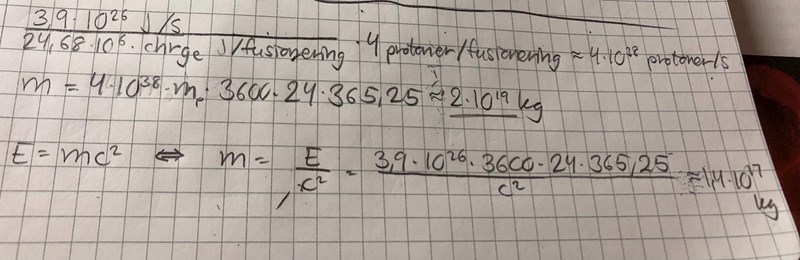 3,9·10²⁶ J/s
24,68·10⁶·chrge J/fusionering · 4 protoner/fusionering ≈ 4·10³⁸ protoner/s
m = 4·10³⁸·mₚ·3600·24·365,25 ≈ 2·10¹⁹ kg
E = mc² ⇔ m = E/c² = 3,9·10²⁶·3600·24·365,25/c² ≈ 1,4·10¹⁷
kg